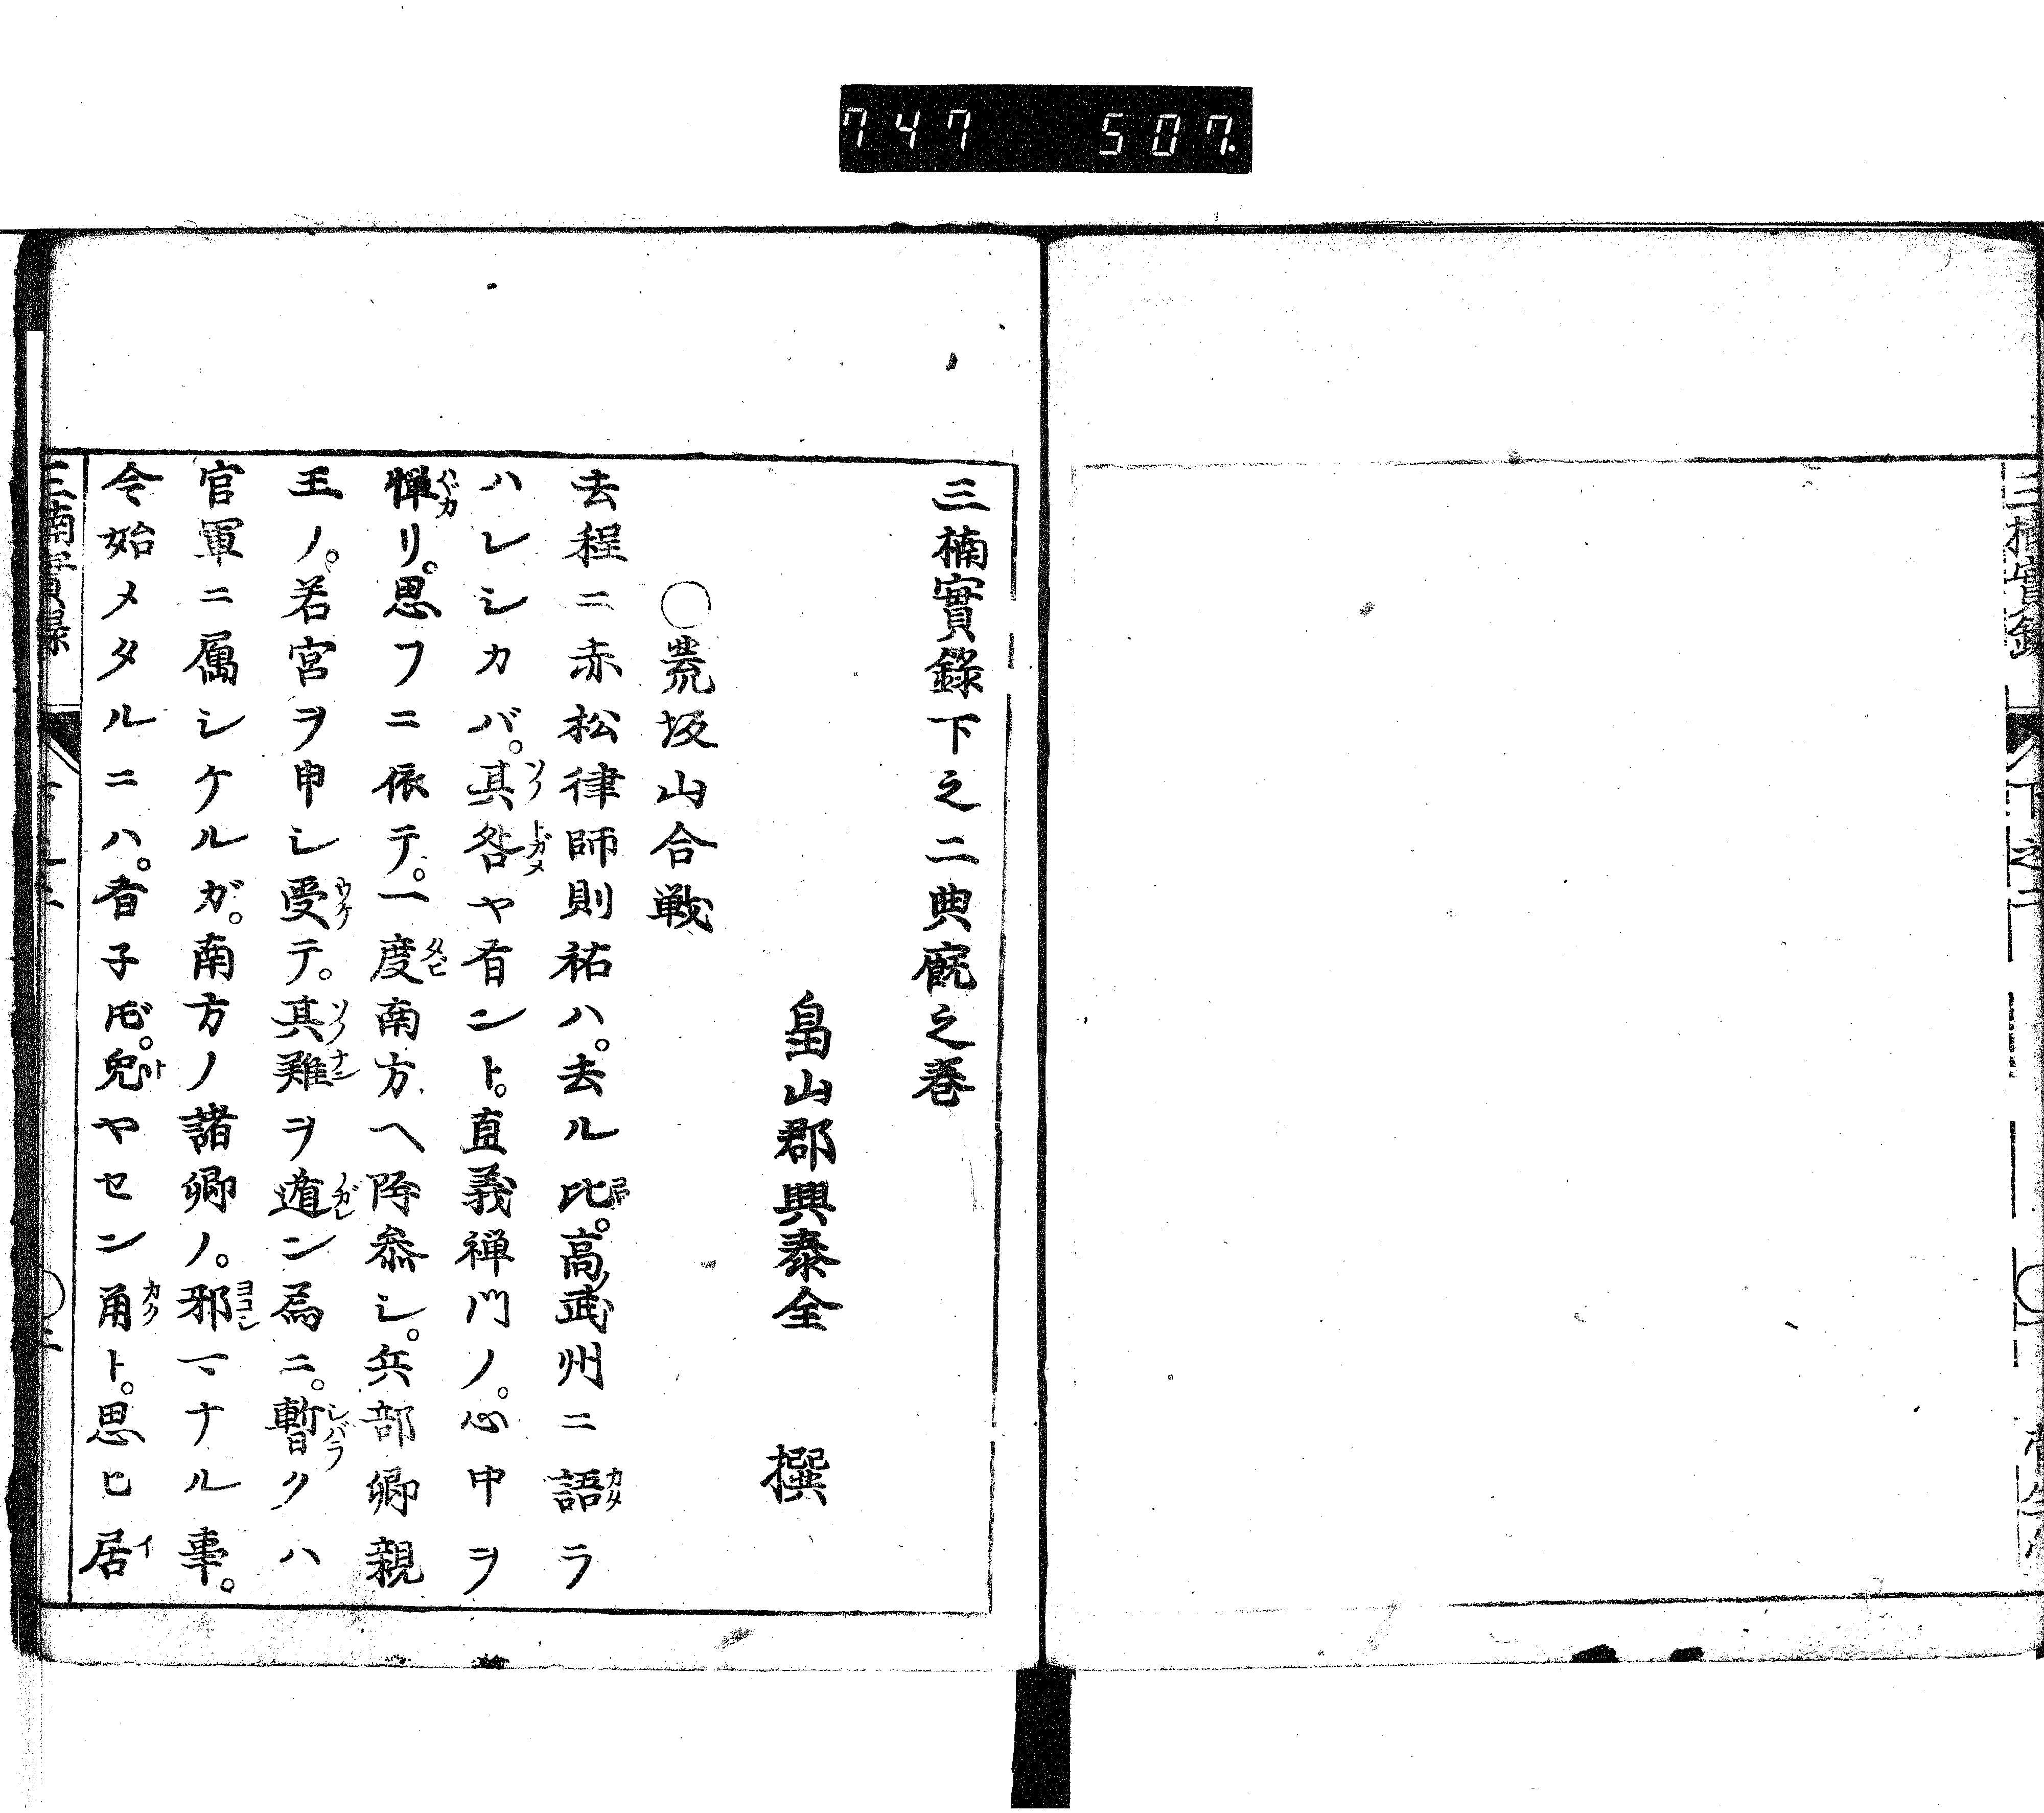 747 507.
三楠實錄下之二典廐之巻
畠山郡興泰全 撰
○荒坂山合戦
去程ニ赤松律師則祐ハ。去ル比。高ノ武州ニ語ラ
ハレシカバ。其咎ヤ有ント。直義禅門ノ。心中ヲ
憚リ。思フニ依テ。一度南方ヘ降参シ。兵部卿親
王ノ。若宮ヲ申シ受テ。其難ヲ遁ン為ニ。暫クハ
官軍ニ属シケルガ。南方ノ諸卿ノ。邪マナル事。
今始メタルニハ。有子ドモ。兎ヤセン角ト。思ヒ居
三楠實錄